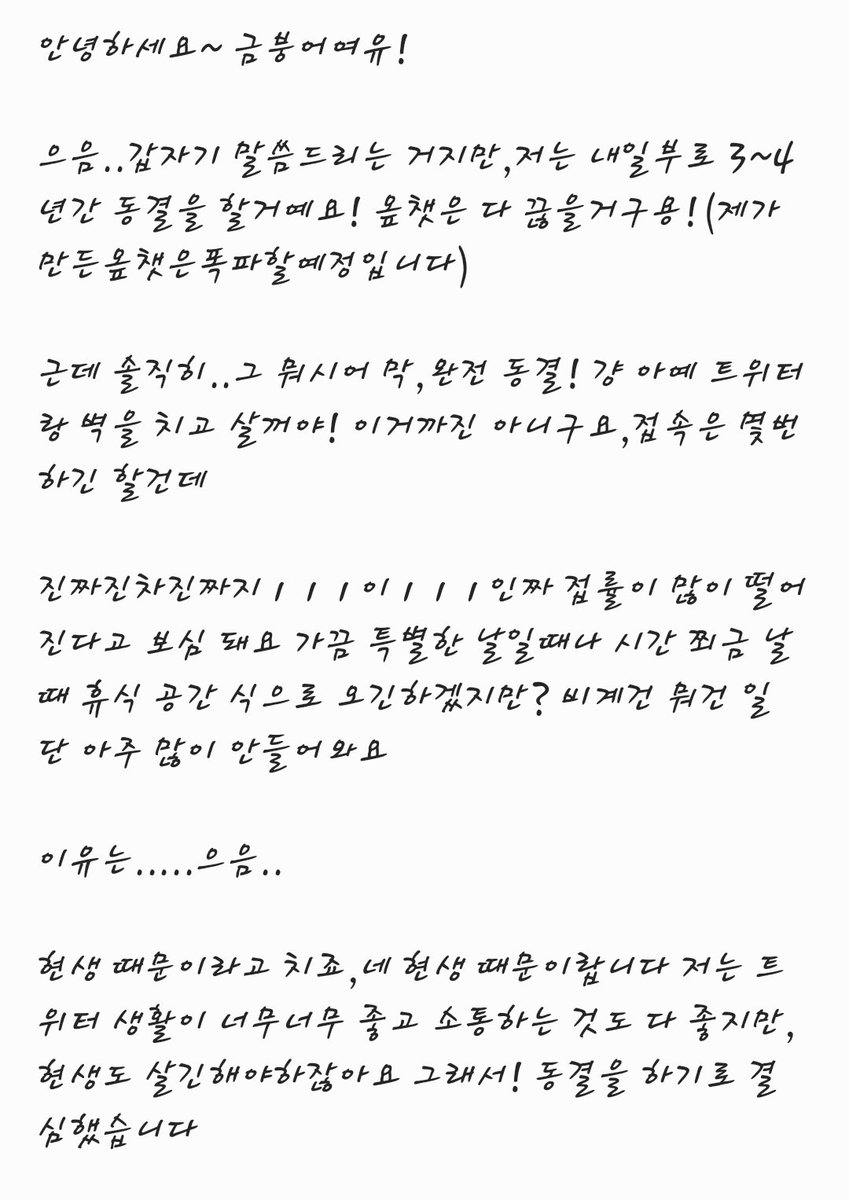 안녕하세요~ 금붕어여유!
으음..갑자기 말씀드리는 거지만,저는 내일부로 3~4
년간 동결을 할거예요! 옾챗은 다 끊을거구용!(제가
만든옾챗은폭파할예정입니다)
근데 솔직히..그 뭐시어 막,완전 동결! 걍 아예 트위터
랑 벽을 치고 살꺼야! 이거까진 아니구요,접속은 몇번
하긴 할건데
진짜진차진짜지ㅣㅣㅣ이ㅣㅣㅣ인짜 접률이 많이 떨어
진다고 보심 돼요 가끔 특별한 날일때나 시간 쬐금 날
때 휴식 공간 식으로 오긴하겠지만? 비계건 뭐건 일
단 아주 많이 안들어와요
이유는.....으음..
현생 때문이라고 치죠,네 현생 때문이랍니다 저는 트
위터 생활이 너무너무 좋고 소통하는 것도 다 좋지만,
현생도 살긴해야하잖아요 그래서! 동결을 하기로 결
심했습니다